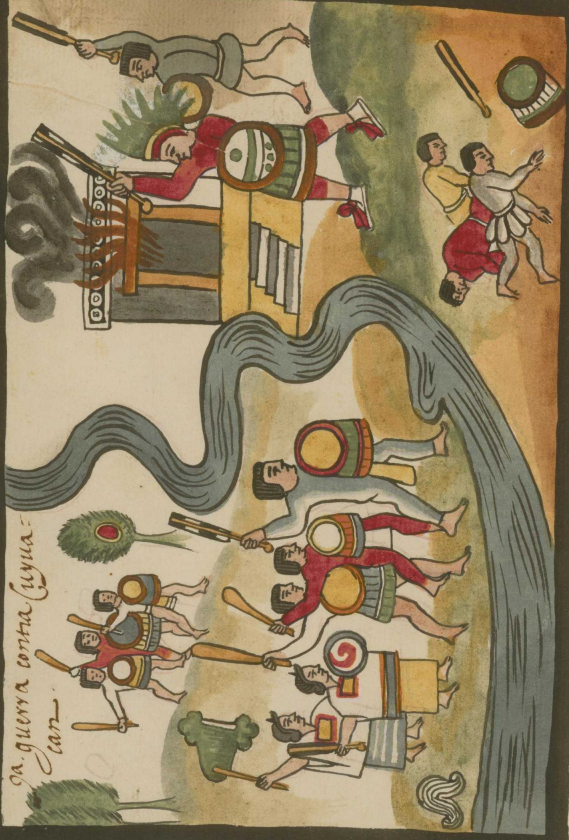 ga. guerra contra Cuyua=
can.